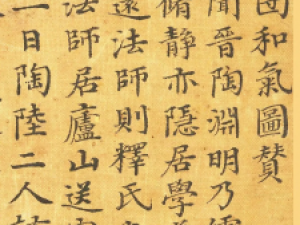 團和氣圖贊
聞晉陶淵明乃儒
脩靜亦隱居學
遠法師則釋氏
法師居廬山送
一日陶陸二人訪